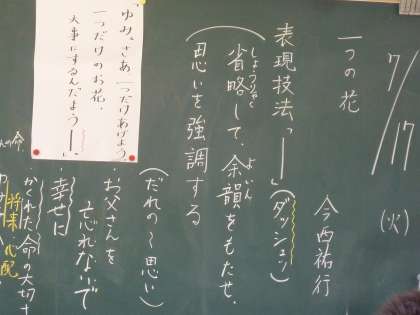 7/17(火)
一つの花 今西祐行
表現技法「―」(ダッシュ)
省略して、余韻をもたせ、
しょうりゃく よいん
思いを強調する
「ゆみ。さあ、一つだけあげよう。
一つだけのお花、
大事にするんだよう―。」
(だれの~思い)
・お父さんを
忘れないで
・幸せに
かくれた命の大切さ
将来 心配
の命